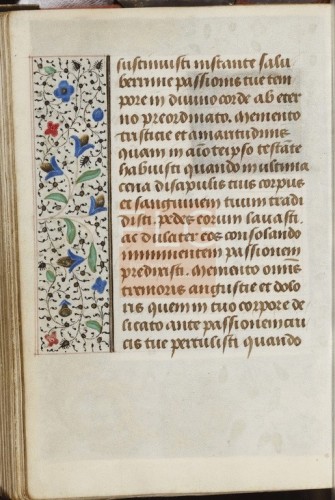 sustinuisti instante salu
berrime passionis tue tem
pore in diuino corde ab eter
no preordinato. Memento
tristicie et amaritudinis
quam in aīo teipso testāte
habuisti quando in ultima
cena discipulis tuis corpus
et sanguinem tuum tradi
disti. pedes eorum lauasti.
ac dulciter eos consolando
imminentem passionem
predixisti. Memento om̄is
tremoris angustie et dolo
ris quem in tuo corpore de
licato ante passionem cru
cis tue pertulisti quando